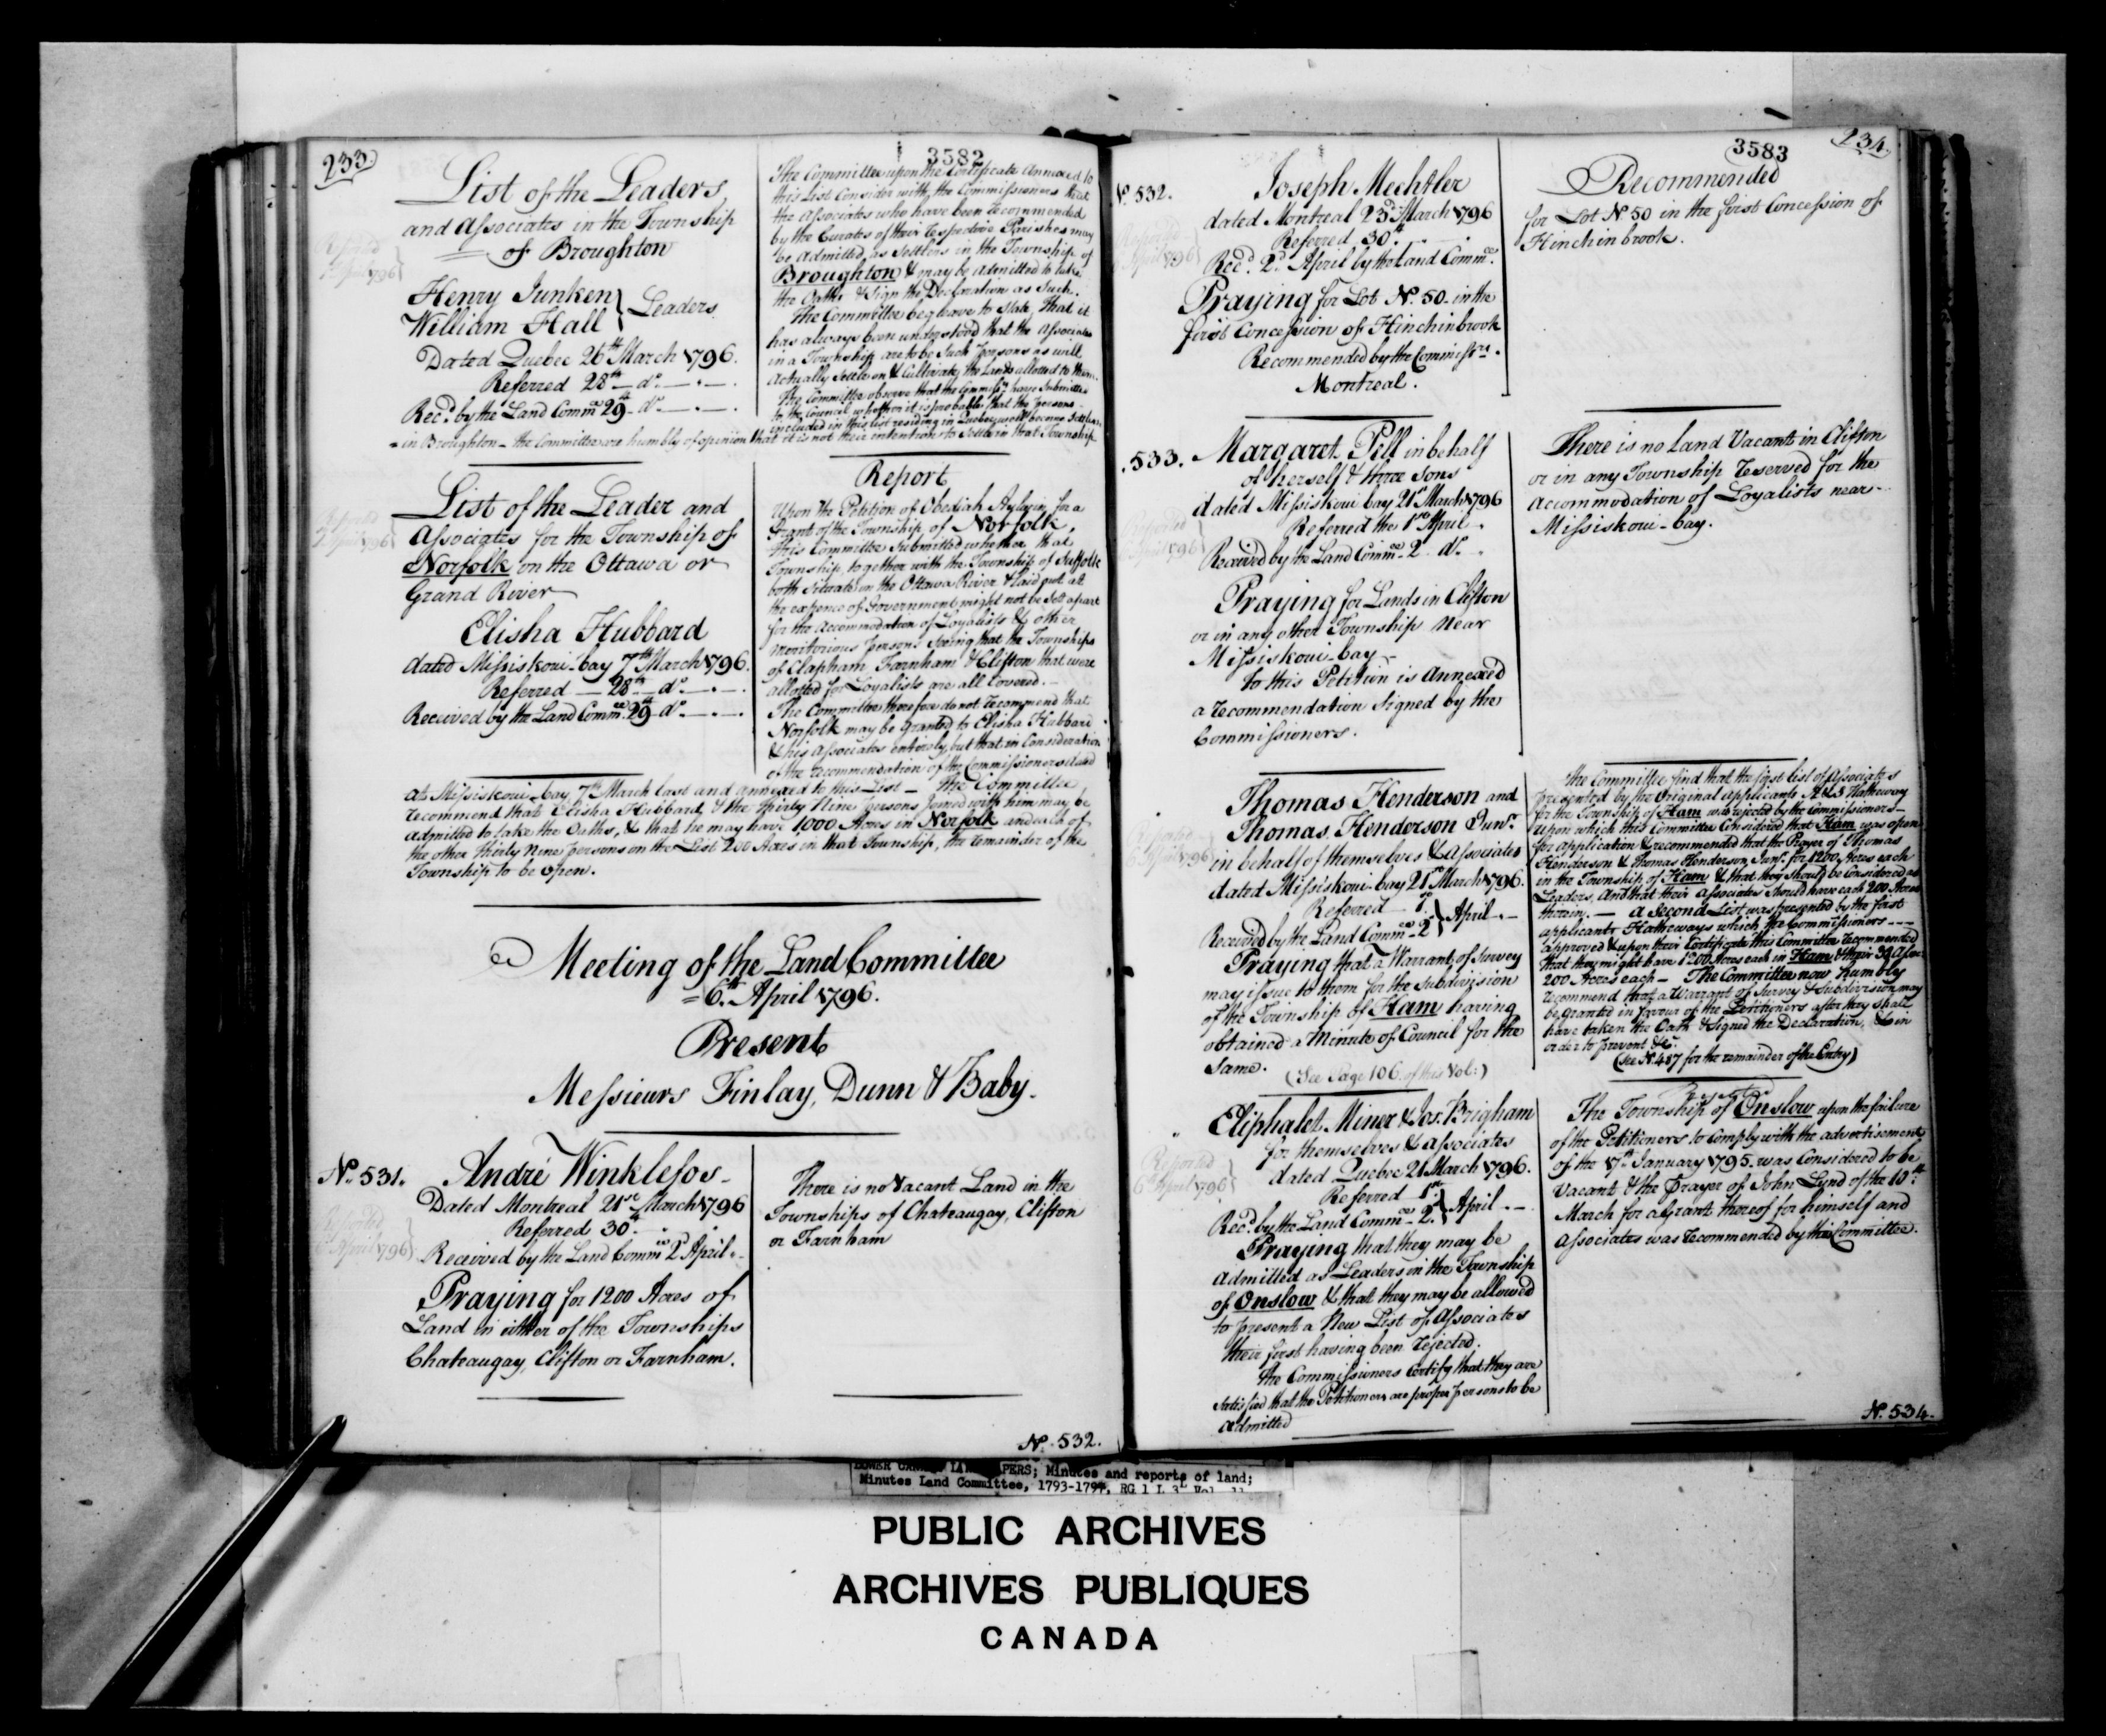 233.
3582
List of the Leaders
and Associates in the Township
of Broughton
Reported
April 1796
Henry Junken
William Hall } Leaders
Dated Quebec 26th March 1796.
Referred 28th do
Recd. by the Land Commee 29th do
The Committee upon the Certificate Annexed to
this List Consider with the Commissioners that
the Associates who have been recommended
by the Curates of their respective Parishes may
be admitted as Settlers in the Township of
Broughton & may be admitted to take
the Oaths & Sign the Declaration as Such.
The Committee beg leave to State, That it
has always been understood that the Associates
in a Township are to be Such persons as will
actually Settle on & Cultivate the Lands allotted to them.
The Committee observe that the Commissrs have Submitted
to the Council whether it is probable that the persons
included in this list residing in Quebec will become Settlers
in Broughton - the Committee are humbly of opinion that it is not their intention to Settle in that Township
List of the Leader and
Associates for the Township of
Norfolk on the Ottawa or
Grand River
Reported
April 1796
Elisha Hubbard
dated Missiskoui-bay 7th March 1796.
Referred 28th do
Received by the Land Commee 29th do
Report
Upon the Petition of Obediah Aylwin for a
Grant of the Township of Norfolk,
this Committee Submitted whether that
Township, together with the Township of Suffolk
both Situate on the Ottawa River & laid out at
the expence of Government might not be Set apart
for the accommodation of Loyalists & other
meritorious persons seeing that the Townships
of Clapham Farnham & Clifton that were
allotted for Loyalists are all Covered. -
The Committee therefore do not recommend that
Norfolk may be Granted to Elisha Hubbard
& his Associates entirely, but that in Consideration
of the recommendation of the Commissioners dated
at Missiskoui-bay 7th March last and annexed to this List - the Committee
recommend that Elisha Hubbard, & the thirty Nine persons joined with him may be
admitted to take the Oaths, & that he may have 1000 Acres in Norfolk and each of
the other thirty Nine persons on the List 200 Acres in that Township, the remainder of the
Township to be open.
Meeting of the Land Committee
6th April 1796.
Present
Messieurs Finlay, Dunn & Baby.
No. 531.
André Winklefos
Dated Montreal 21st March 1796
Referred 30th
Received by the Land Commee 2d April
Reported
6 April 1796
Praying for 1200 Acres of
Land in either of the Townships
Chateaugay, Clifton or Farnham.
There is no Vacant Land in the
Townships of Chateaugay, Clifton
or Farnham
No. 532.
234.
3583
No. 532.
Joseph Mechtler
dated Montreal 23d March 1796
Referred 30th
Recd. 2d April by the Land Commee
Reported
April 1796
Praying for Lot No. 50 in the
first Concession of Hinchinbrook
Recommended by the Commissrs.
Montreal.
Recommended
for Lot No 50 in the first Concession of
Hinchinbrook.
533.
Margaret Pell in behalf
of herself & three Sons
dated Missiskoui bay 21st March 1796
Referred the 1st April
Received by the Land Commee 2 do
Reported
April 1796
Praying for Lands in Clifton
or in any other Township Near
Missiskoui-bay -
To this Petition is Annexed
a recommendation Signed by the
Commissioners.
There is no Land Vacant in Clifton
or in any Township reserved for the
accommodation of Loyalists near
Missiskoui-bay.
Thomas Henderson and
Thomas Henderson Junr.
in behalf of themselves & Associates
dated Missiskoui-bay 21st March 1796.
Referred 1st
Received by the Land Commee 2 } April
Reported
April 1796
Praying that a Warrant of Survey
may issue to them for the Subdivision
of the Township of Ham having
obtained a Minute of Council for the
Same.
(See Page 106 of this Vol:)
The Committee find that the first list of Associates
presented by the Original applicants A & S Hatheway
for the Township of Ham was rejected by the Commissioners -
upon which this Committee Considered that Ham was open
for application & recommended that the Prayer of Thomas
Henderson & Thomas Henderson Junr. for 1200 Acres each
in the Township of Ham & that they Should be Considered as
Leaders, And that their Associates Should have each 200 Acres
therein. - a Second List was presented by the first
applicants Hatheways which the Commissioners
approved & upon their Certificate this Committee recommended
that they might have 1200 Acres each in Ham & their 38 Assoc:
200 Acres each - The Committee now humbly
recommend that a Warrant of Survey & Subdivision may
be granted in favour of the Petitioners after they shall
have taken the Oath & Signed the Declaration, & in
order to prevent &c.
(See No. 487 for the remainder of the Entry)
Eliphalet Miner & Jos. Brigham
for themselves & Associates
dated Quebec 21 March 1796.
Referred 1st
Recd. by the Land Commee 2. } April
Reported
6th April 1796
Praying that they may be
admitted as Leaders in the Township
of Onslow & that they may be allowed
to present a New List of Associates
their first having been rejected.
The Commissioners Certify that they are
Satisfied that the Petitioners are proper persons to be
admitted
The Township of Onslow upon the failure
of the Petitioners to Comply with the advertisement
of the 17th January 1795 was Considered to be
Vacant & the prayer of John Lynd of the 10th
March for a Grant thereof for himself and
Associates was recommended by this Committee.
No. 534.
Minutes and reports of land;
Minutes Land Committee, 1793-1797, RG 1 L 3L Vol. 11
PUBLIC ARCHIVES
ARCHIVES PUBLIQUES
CANADA